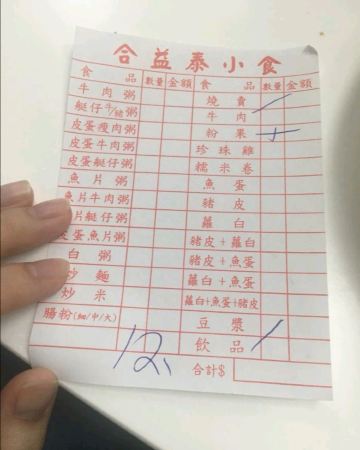 合益泰小食
食品 數量 金額 食品 數量 金額
牛肉粥 燒賣
艇仔牛/豬粥 牛肉
皮蛋瘦肉粥 粉果
皮蛋牛肉粥 珍珠雞
皮蛋艇仔粥 糯米卷
魚片粥 魚蛋
魚片牛肉粥 豬皮
片艇仔粥 蘿白
蛋魚片粥 豬皮+蘿白
白粥 豬皮+魚蛋
炒麵 蘿白+魚蛋
炒米 蘿白+魚蛋+豬皮
腸粉(細/中/大) 豆漿
飲品
12
合計$